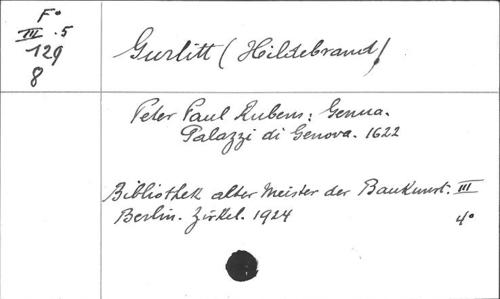 F°
III . 5
129
8
Gurlitt (Hildebrand)
Peter Paul Rubens: Genua.
Palazzi di Genova. 1622
Bibliothek alter Meister der Baukunst. III
Berlin. Zirkel. 1924 4°